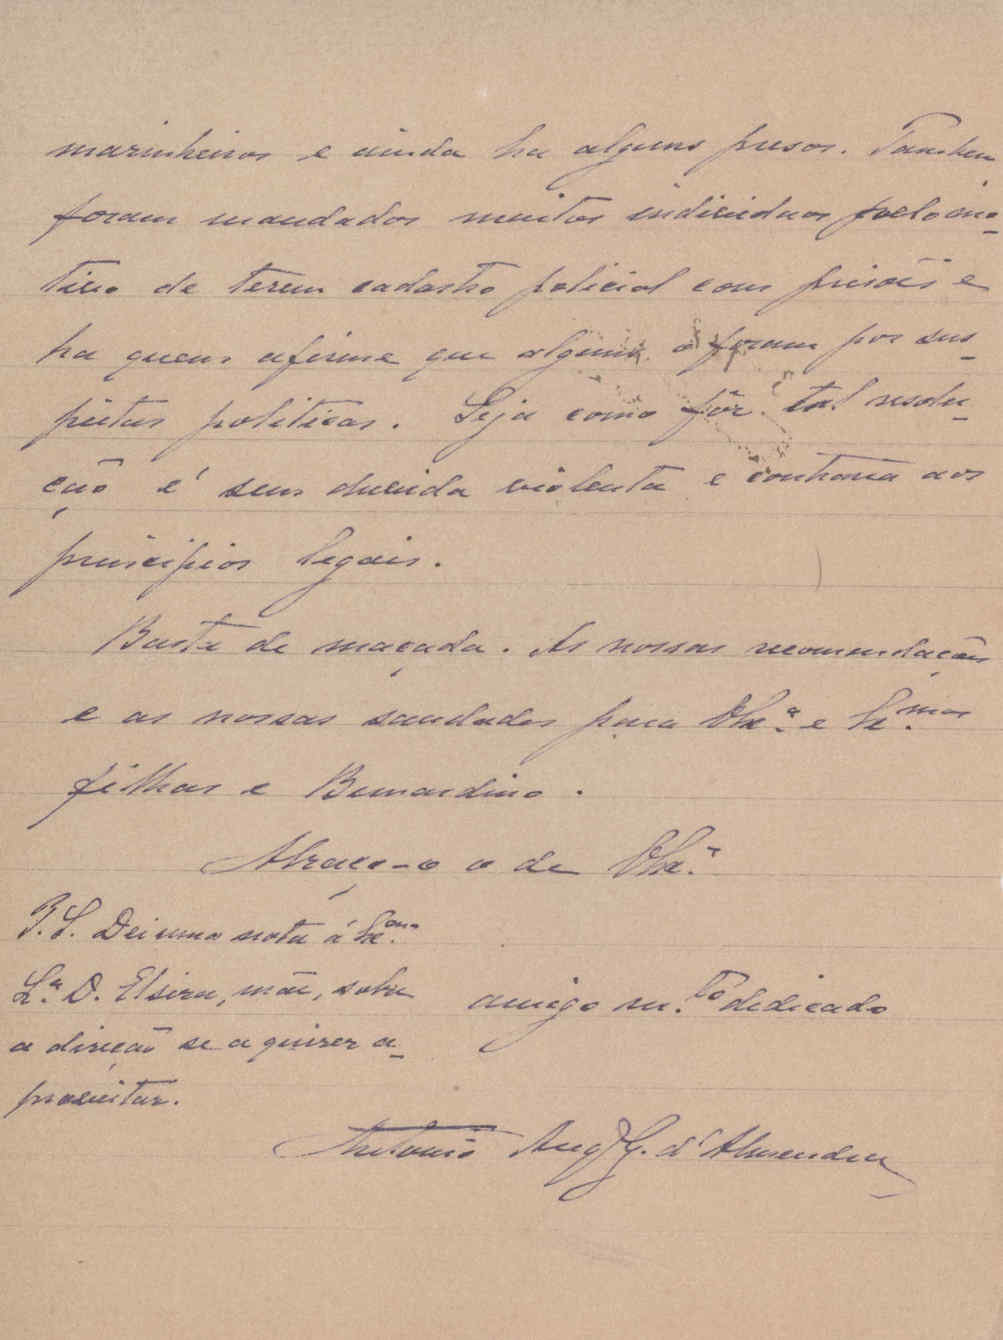 marinheiros e ainda ha alguns presos. Tambem
foram mandados muitos individuos pelo mo-
tivo de terem cadastro policial com prisões e
ha quem afirme que alguns o foram por sus-
peitas politicas. Seja como fôr tal resolu-
ção é sem duvida violenta e contraria aos
principios legais.
Basta de maçada. As nossas recomendações
e as nossas saudades para VEx.ª e Ex.mas
filhas e Bernardino.
Abraça-o o de VEx.ª
P.S. Dei uma nota á Ex.ma
Sr.ª D. Elzira, mãe, sobre
a direção se a quizer a-
proveitar.
amigo m.to dedicado
Antonio Aug. G. d'Almendra